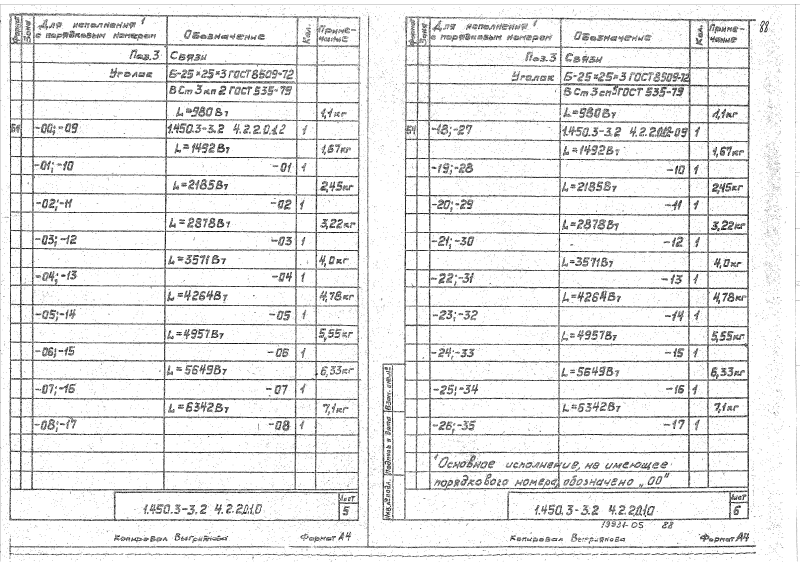 88
Формат
Зона
Для исполнения¹
с порядковым номером
Обозначение
Кол.
Приме-
чание
Поз.3 Связи
Уголок Б-25×25×3 ГОСТ 8509-72
ВСт3кп2 ГОСТ 535-79
L=980Вт 1,1кг
БЧ -00;-09 1.450.3-3.2 4.2.2.0.1.2 1
L=1492Вт 1,67кг
-01;-10 -01 1
L=2185Вт 2,45кг
-02;-11 -02 1
L=2878Вт 3,22кг
-03;-12 -03 1
L=3571Вт 4,0кг
-04;-13 -04 1
L=4264Вт 4,78кг
-05;-14 -05 1
L=4957Вт 5,55кг
-06;-15 -06 1
L=5649Вт 6,33кг
-07;-16 -07 1
L=6342Вт 7,1кг
-08;-17 -08 1
1.450.3-3.2 4.2.2.0.1.0
Лист
5
Копировал Выгриянова Формат А4
Формат
Зона
Для исполнения¹
с порядковым номером
Обозначение
Кол.
Приме-
чание
Поз.3 Связи
Уголок Б-25×25×3 ГОСТ 8509-72
ВСт3сп5 ГОСТ 535-79
L=980Вт 1,1кг
БЧ -18;-27 1.450.3-3.2 4.2.2.0.1.2-09 1
L=1492Вт 1,67кг
-19;-28 -10 1
L=2185Вт 2,45кг
-20;-29 -11 1
L=2878Вт 3,22кг
-21;-30 -12 1
L=3571Вт 4,0кг
-22;-31 -13 1
L=4264Вт 4,78кг
-23;-32 -14 1
L=4957Вт 5,55кг
-24;-33 -15 1
L=5649Вт 6,33кг
-25;-34 -16 1
L=6342Вт 7,1кг
-26;-35 -17 1
¹ Основное исполнение, не имеющее
порядкового номера, обозначено „00"
Инв.№подл. Подпись и дата Взам. инв.№
1.450.3-3.2 4.2.2.0.1.0
Лист
6
19931-05 88
Копировал Выгриянова Формат А4